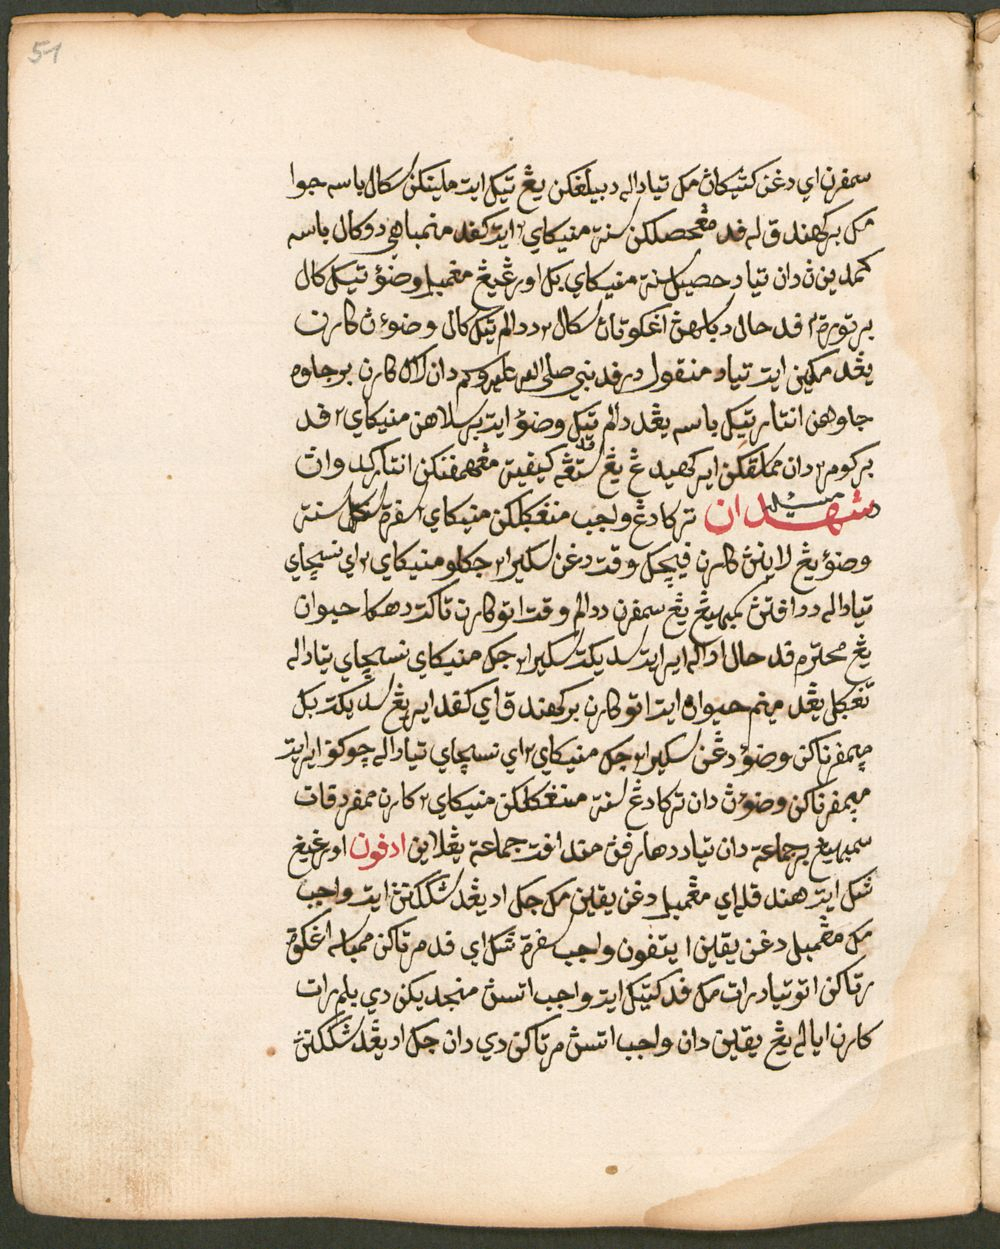 51
سمفرن اي دڠن كتيكاڽ مك تياداله دبيلڠكن يڠ تيݢ ايت ملينكن سكال باسه جوا
مك برڪهندقله فد مڠحصلكن سنة منيݢاي٢ ايت كفد منمباهي دوكال باسه
كمدينڽ دان تياد حصيل سنة منيݢاي بݢ اورڠ يڠ مڠمبل وضؤ تيݢ كال
برتورة٢ فد حال دباسهڽ اڠݢوتاڽ سكال٢ ددالم تيݢ كال وضوءڽ كارن
يڠدمكين ايت تياد منقول درفد نبي صلى الله عليه وسلم دان لاݢ كارن برجاوه
جاوهن انتار تيݢ باسه يڠد دالم تيݢ وضؤ ايت برسلاهن منيݢاي٢ فد
بركومر٢ دان مماسقكن اير كهيدڠ يڠ سڠكه كيفية مڠهمفنكن انتار كدواڽ
مسئله
شهدان تركادڠ واجب منڠݢلكن منيݢاي٢ سفرة تڠݢل سنة
وضؤ يڠ لاينڽ كارن فيچق وقت دڠن سكير٢ جكلو منيݢاي٢ اي نسچاي
تياداله ددافتڽ سمبهيڠ يڠ سمفرن ددالم وقت اتو كارن تاكت دهاݢ حيوان
يڠ محترم فد حال اداله اير ايت سديكت سكير٢ جك منيݢاي نسچاي تياداله
تڠݢل يڠد مينم حيوان ايت اتو كارن برڪهندق اي كفد اير يڠ سديكت بݢ
مپمفرناكن وضؤ دڠن سكير٢ جك منيݢاي٢ اي نسچاي تياداله چوكف اير ايت
مپمفرناكن وضوءڽ دان تركادڠ سنة منڠݢلكن منيݢاي٢ كارن ممفردافت
سمبهيڠ برجماعة دان تياد دهارفڽ مندافت جماعة يڠلاين ادفون اورڠ يڠ
شك ايت هندقله اي مڠمبل دڠن يقين مك جك اد يڠد شككنڽ ايت واجب
مك مڠمبل دڠن يقين ايتفون واجب سفرة شك اي فد مرتاكن ممباسه اڠݢوة
رتاكن اتو تياد رات مك فد كتيك ايت واجب اتسڽ منجديكن دي بلم رات
كارن اياله يڠ يقين دان واجب اتسڽ مرتاكن دي دان جك اد يڠد شككنڽ